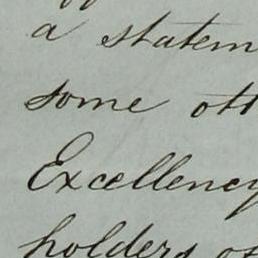 a statem
some ott
Excellency
holders of